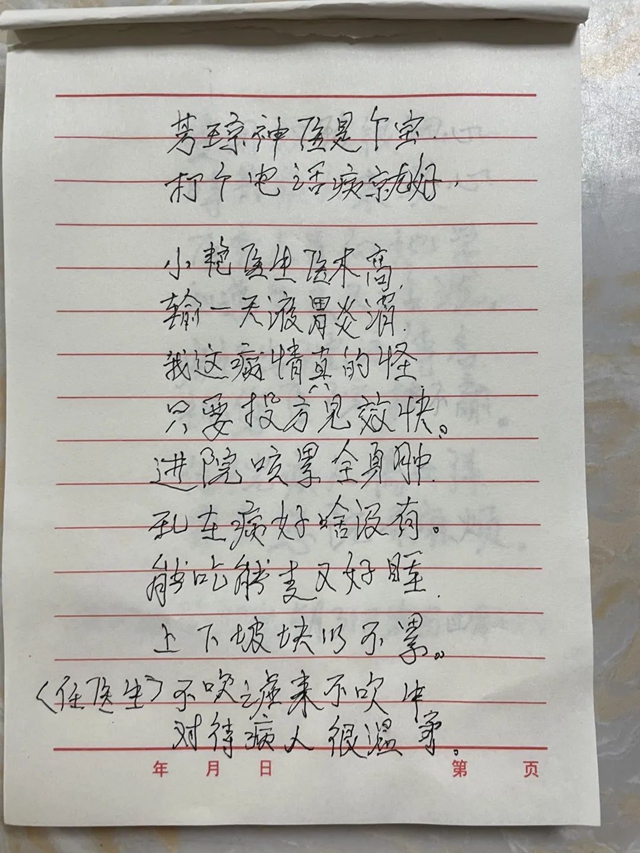 芳琼神医是个宝.
打个电话病就好.
小艳医生医术高,
输一天液胃炎消.
我这病情真的怪
只要投方见效快。
进院咳累全身肿.
现在病好啥没有。
能吃能走又好睡.
上下坡坎仍不累。
(任医生)不吹嘘来不吹牛
对待病人很温柔。
年 月 日 第 页